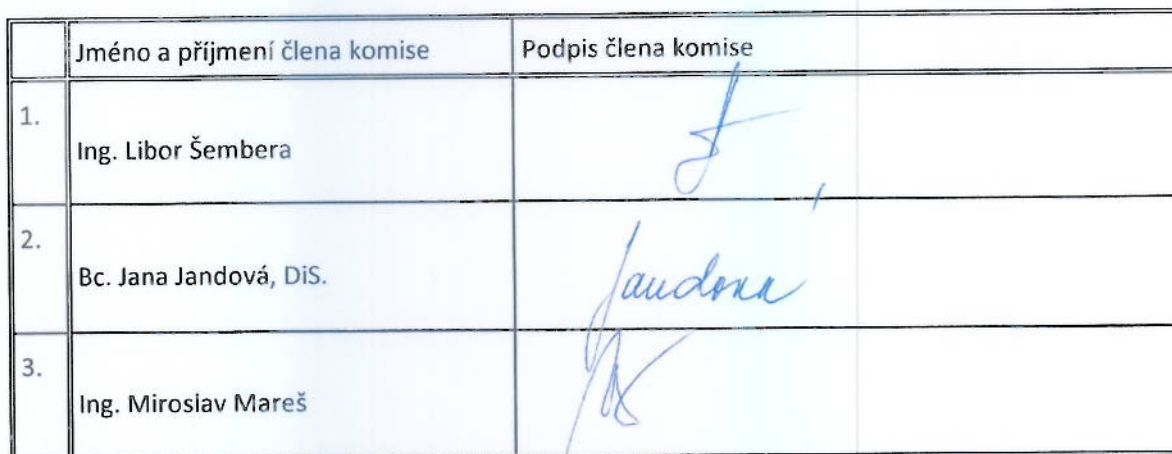 Jméno a příjmení člena komise Podpis člena komise
1.
Ing. Libor Šembera
2.
Bc. Jana Jandová, DiS. Jandová
3.
Ing. Miroslav Mareš